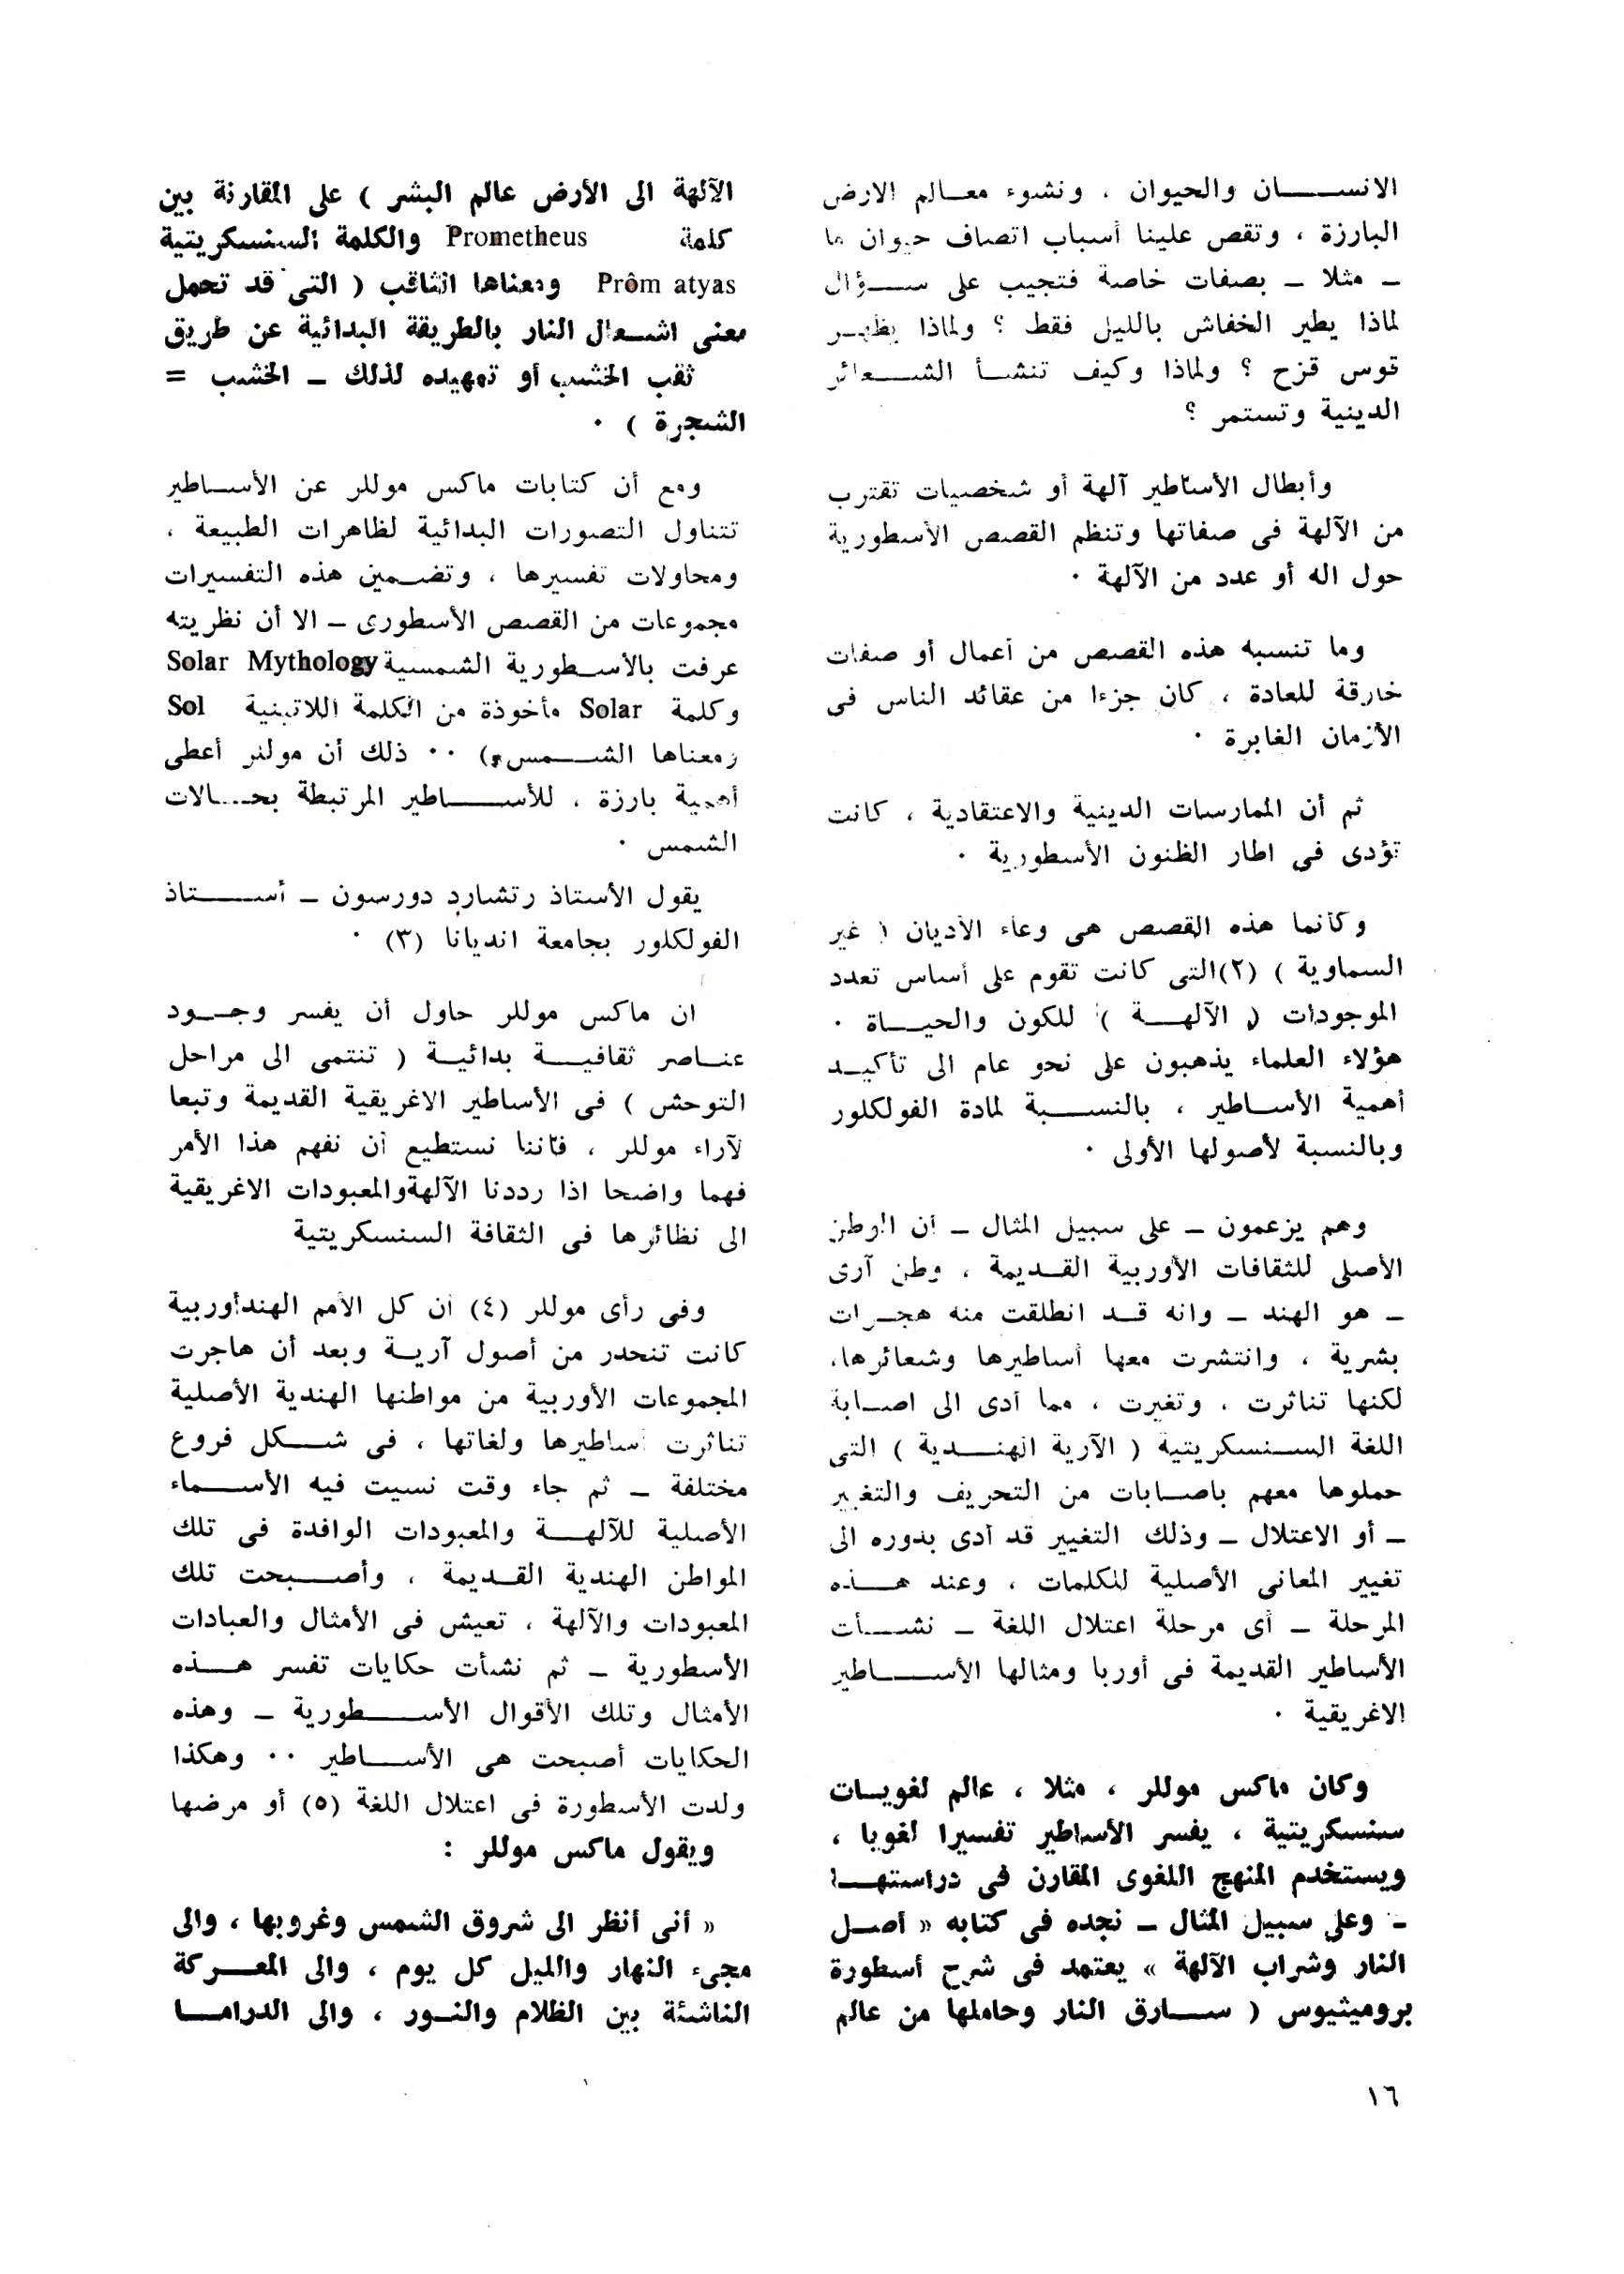 الانسان والحيوان ، ونشوء معالم الارض
البارزة ، وتقص علينا أسباب اتصاف حيوان ما
ـ مثلا ـ بصفات خاصة فتجيب على سؤال
لماذا يطير الخفاش بالليل فقط ؟ ولماذا يظهر
قوس قزح ؟ ولماذا وكيف تنشأ الشعائر
الدينية وتستمر ؟
وأبطال الأساطير آلهة أو شخصيات تقترب
من الآلهة فى صفاتها وتنظم القصص الأسطورية
حول اله أو عدد من الآلهة ٠
وما تنسبه هذه القصص من أعمال أو صفات
خارقة للعادة ، كان جزءا من عقائد الناس فى
الأزمان الغابرة ٠
ثم أن الممارسات الدينية والاعتقادية ، كانت
تؤدى فى اطار الظنون الأسطورية ٠
وكأنما هذه القصص هى وعاء الأديان ( غير
السماوية ) (٢) التى كانت تقوم على أساس تعدد
الموجودات ( الآلهة ) للكون والحياة ٠
هؤلاء العلماء يذهبون على نحو عام الى تأكيد
أهمية الأساطير ، بالنسبة لمادة الفولكلور
وبالنسبة لأصولها الأولى ٠
وهم يزعمون ـ على سبيل المثال ـ أن الوطن
الأصلى للثقافات الأوربية القديمة ، وطن آرى
ـ هو الهند ـ وانه قد انطلقت منه هجرات
بشرية ، وانتشرت معها أساطيرها وشعائرها،
لكنها تناثرت ، وتغيرت ، مما أدى الى اصابة
اللغة السنسكريتية ( الآرية الهندية ) التى
حملوها معهم باصابات من التحريف والتغيير
ـ أو الاعتلال ـ وذلك التغيير قد أدى بدوره الى
تغيير المعانى الأصلية للكلمات ، وعند هذه
المرحلة ـ أى مرحلة اعتلال اللغة ـ نشأت
الأساطير القديمة فى أوربا ومثالها الأساطير
الاغريقية ٠
وكان ماكس موللر ، مثلا ، عالم لغويات
سنسكريتية ، يفسر الأساطير تفسيرا لغويا ،
ويستخدم المنهج اللغوى المقارن فى دراستها
ـ وعلى سبيل المثال ـ نجده فى كتابه « أصل
النار وشراب الآلهة » يعتمد فى شرح أسطورة
بروميثيوس ( سارق النار وحاملها من عالم
الآلهة الى الأرض عالم البشر ) على المقارنة بين
كلمة Prometheus والكلمة السنسكريتية
Prôm atyas ومعناها الثاقب ( التى قد تحمل
معنى اشعال النار بالطريقة البدائية عن طريق
ثقب الخشب أو تمهيده لذلك ـ الخشب =
الشجرة ) ٠
ومع أن كتابات ماكس موللر عن الأساطير
تتناول التصورات البدائية لظاهرات الطبيعة ،
ومحاولات تفسيرها ، وتضمين هذه التفسيرات
مجموعات من القصص الأسطورى ـ الا أن نظريته
عرفت بالأسطورية الشمسية Solar Mythology
وكلمة Solar مأخوذة من الكلمة اللاتينية Sol
ومعناها الشمس) ٠٠ ذلك أن موللر أعطى
أهمية بارزة ، للأساطير المرتبطة بحالات
الشمس ٠
يقول الأستاذ رتشارد دورسون ـ أستاذ
الفولكلور بجامعة انديانا (٣) ٠
ان ماكس موللر حاول أن يفسر وجود
عناصر ثقافية بدائية ( تنتمى الى مراحل
التوحش ) فى الأساطير الاغريقية القديمة وتبعا
لآراء موللر ، فاننا نستطيع أن نفهم هذا الأمر
فهما واضحا اذا رددنا الآلهة والمعبودات الاغريقية
الى نظائرها فى الثقافة السنسكريتية
وفى رأى موللر (٤) أن كل الأمم الهندأوربية
كانت تنحدر من أصول آرية وبعد أن هاجرت
المجموعات الأوربية من مواطنها الهندية الأصلية
تناثرت أساطيرها ولغاتها ، فى شكل فروع
مختلفة ـ ثم جاء وقت نسيت فيه الأسماء
الأصلية للآلهة والمعبودات الوافدة فى تلك
المواطن الهندية القديمة ، وأصبحت تلك
المعبودات والآلهة ، تعيش فى الأمثال والعبادات
الأسطورية ـ ثم نشأت حكايات تفسر هذه
الأمثال وتلك الأقوال الأسطورية ـ وهذه
الحكايات أصبحت هى الأساطير ٠٠ وهكذا
ولدت الأسطورة فى اعتلال اللغة (٥) أو مرضها
ويقول ماكس موللر :
« أنى أنظر الى شروق الشمس وغروبها ، والى
مجىء النهار والليل كل يوم ، والى المعركة
الناشئة بين الظلام والنور ، والى الدراما
١٦